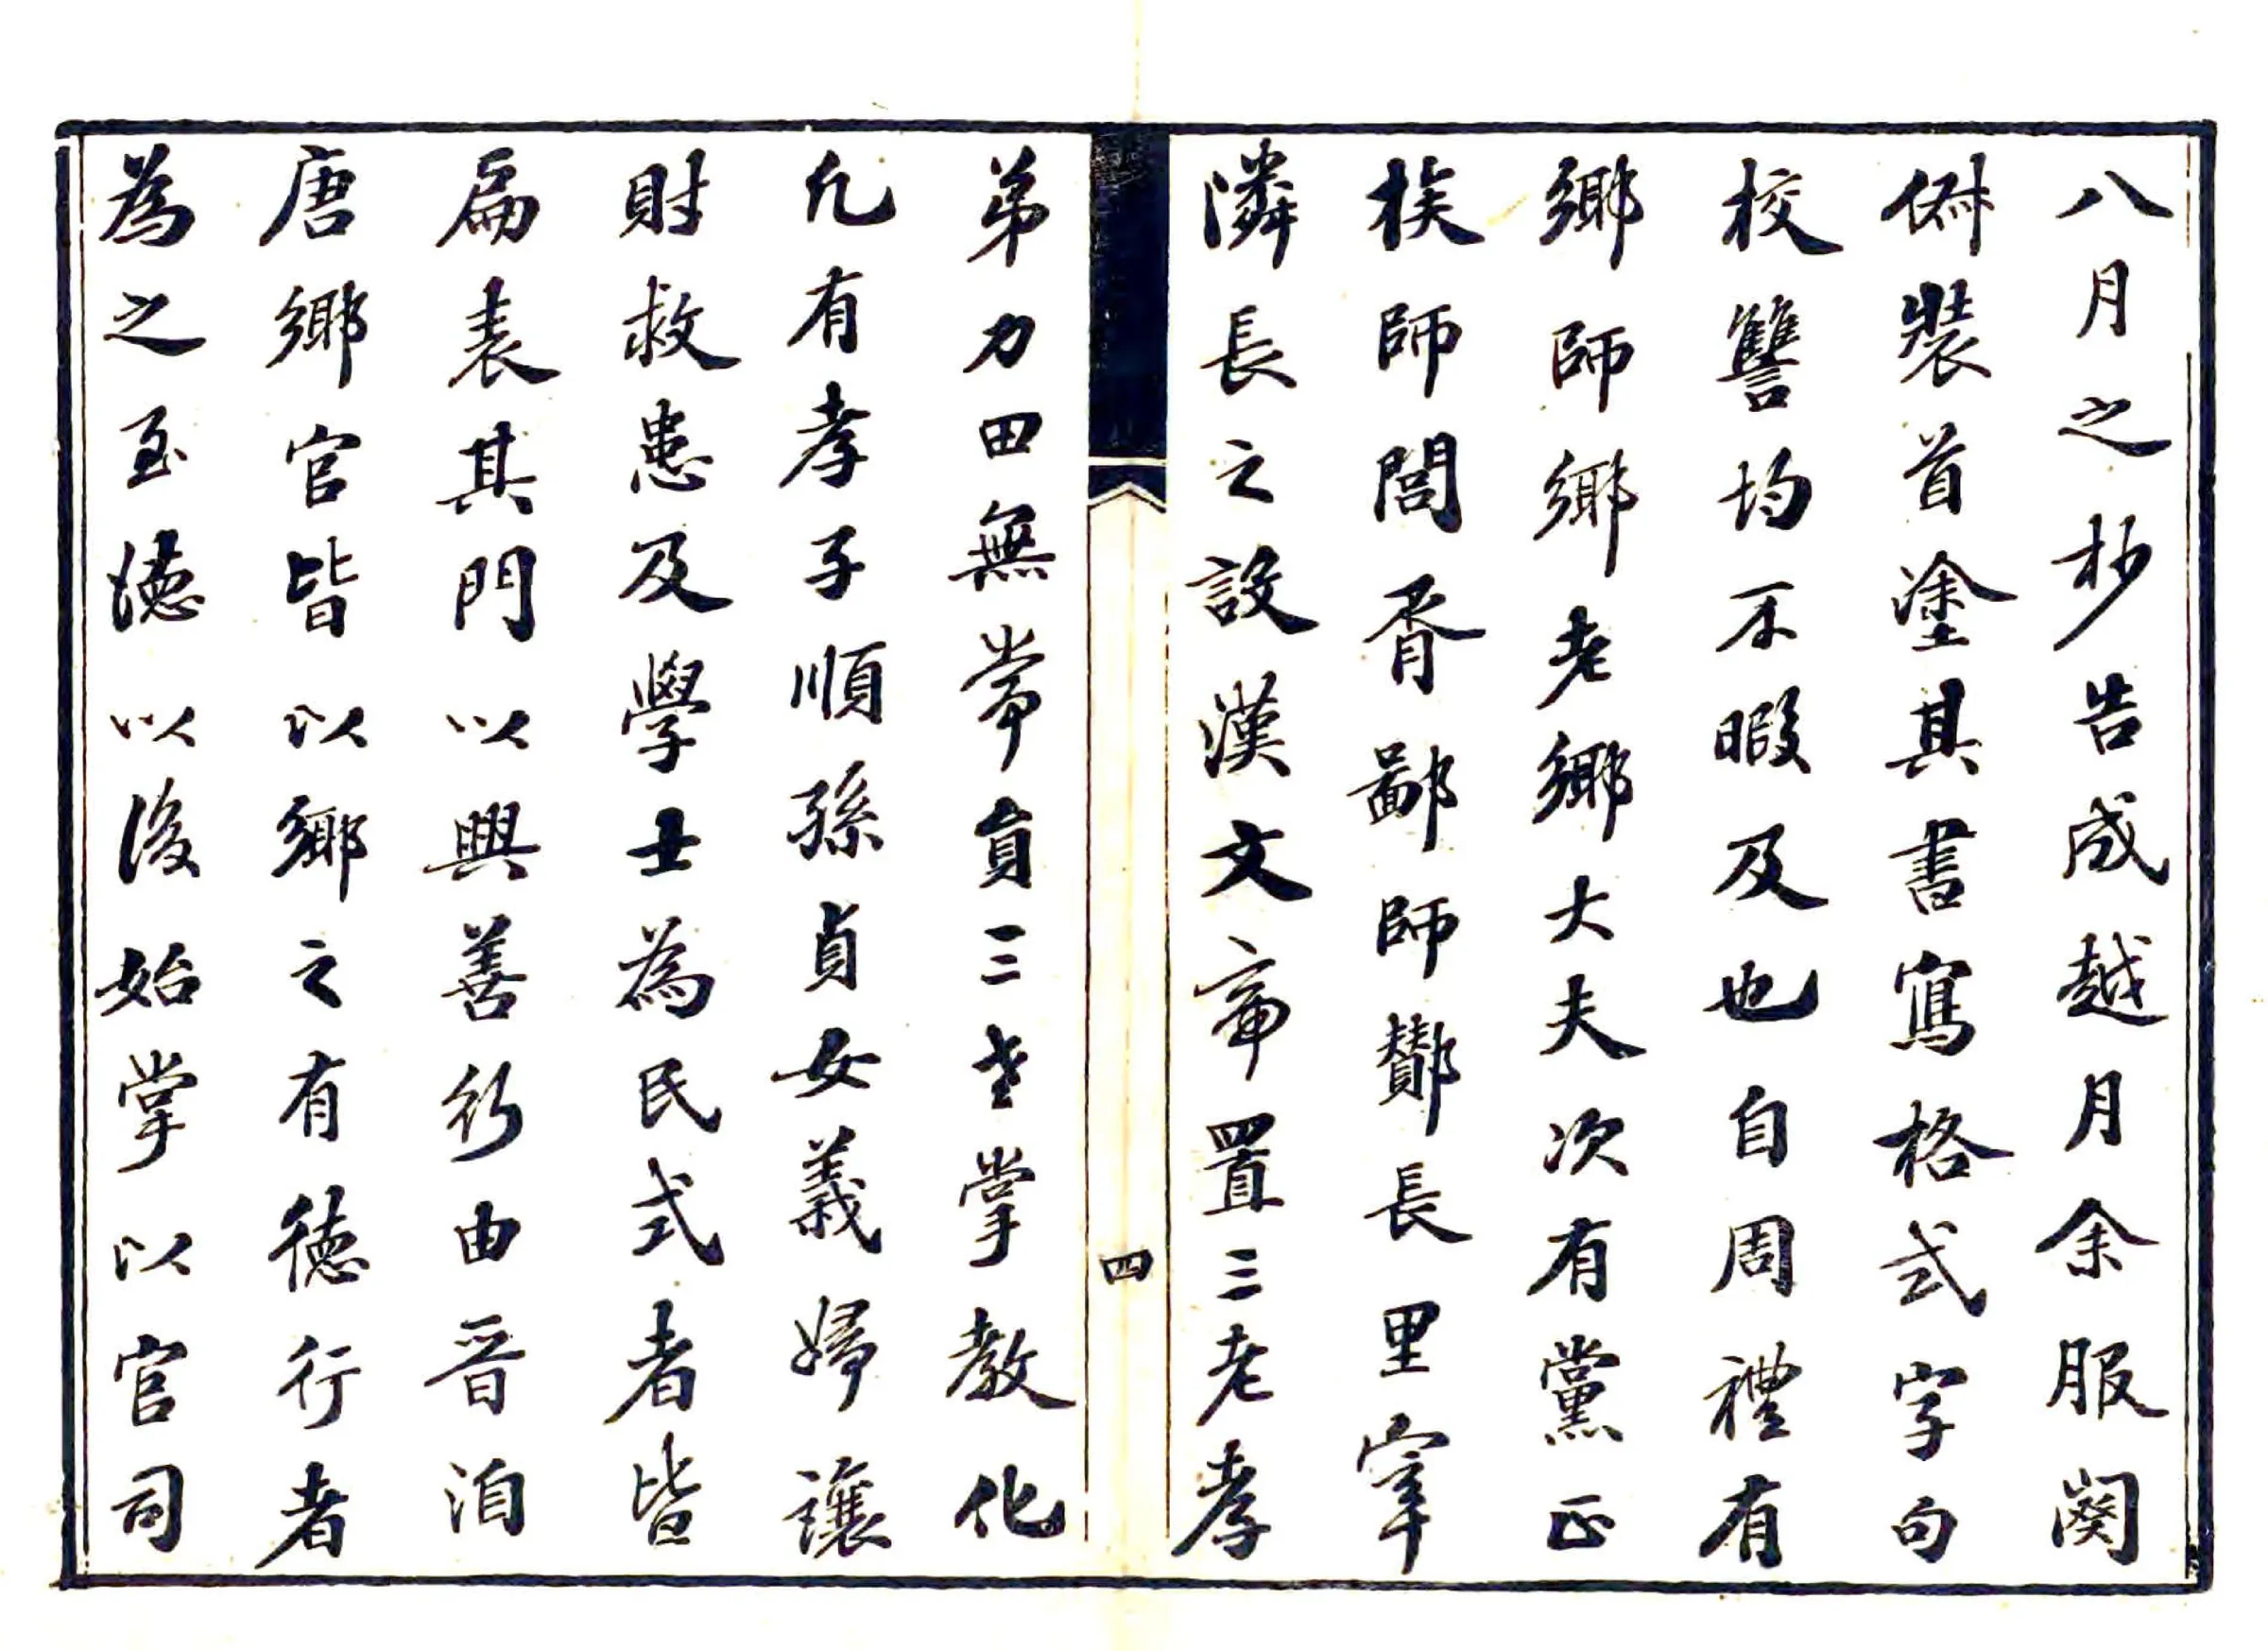 八月之杪告成越月余服闋
俶裝首塗其書寫格式字句
校讐均不暇及也自周禮有
鄉師鄉老鄉大夫次有黨正
族師閭胥鄙師酇長里宰
隣長之設漢文帝置三老孝
四
弟力田無常員三老掌教化
凡有孝子順孫貞女義婦讓
財救患及學士為民式者皆
扁表其門以興善行由晉洎
唐鄉官皆以鄉之有德行者
為之至德以後始掌以官司